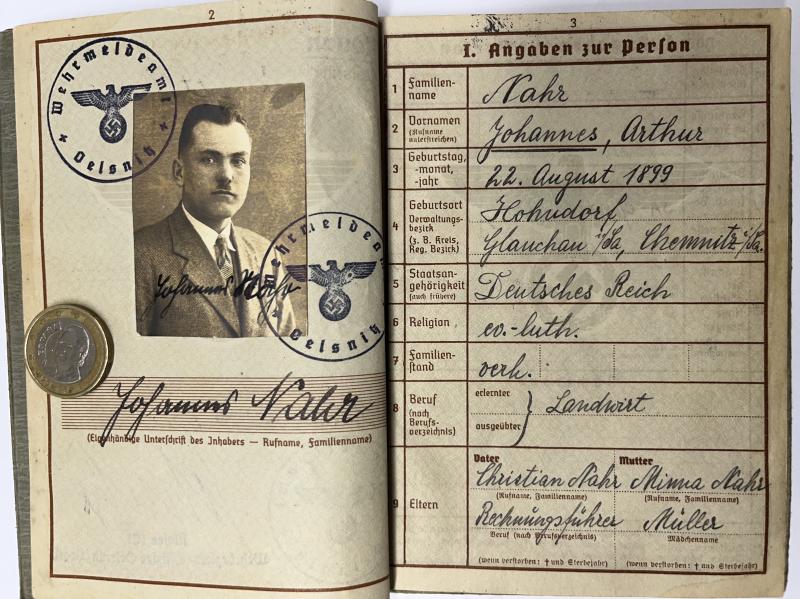 2
Wehrmeldeamt
Oelsnitz
Wehrmeldeamt
Oelsnitz
Johannes Nahr
Johannes Nahr
(Eigenhändige Unterschrift des Inhabers — Rufname, Familienname)
3
I. Angaben zur Person
1 Familien-
name
Nahr
2 Vornamen
(Rufname
unterstreichen)
Johannes, Arthur
3 Geburtstag,
-monat,
-jahr
22. August 1899
4 Geburtsort
Verwaltungs-
bezirk
(z. B. Kreis,
Reg. Bezirk)
Hohndorf
Glauchau i/Sa, Chemnitz i/Sa.
5 Staatsan-
gehörigkeit
(auch frühere)
Deutsches Reich
6 Religion
ev.-luth.
7 Familien-
stand
verh.
8 Beruf
(nach
Berufs-
verzeichnis)
erlernter
ausgeübter
Landwirt
9 Eltern
Vater Mutter
Christian Nahr Minna Nahr
(Rufname, Familienname) (Rufname, Familienname)
Rechnungsführer Müller
Beruf (nach Berufsverzeichnis) Mädchenname
(wenn verstorben: † und Sterbejahr) (wenn verstorben: † und Sterbejahr)